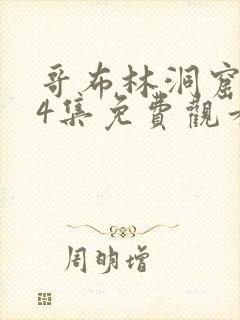 哥布林洞窟
4集免費觀
周明增